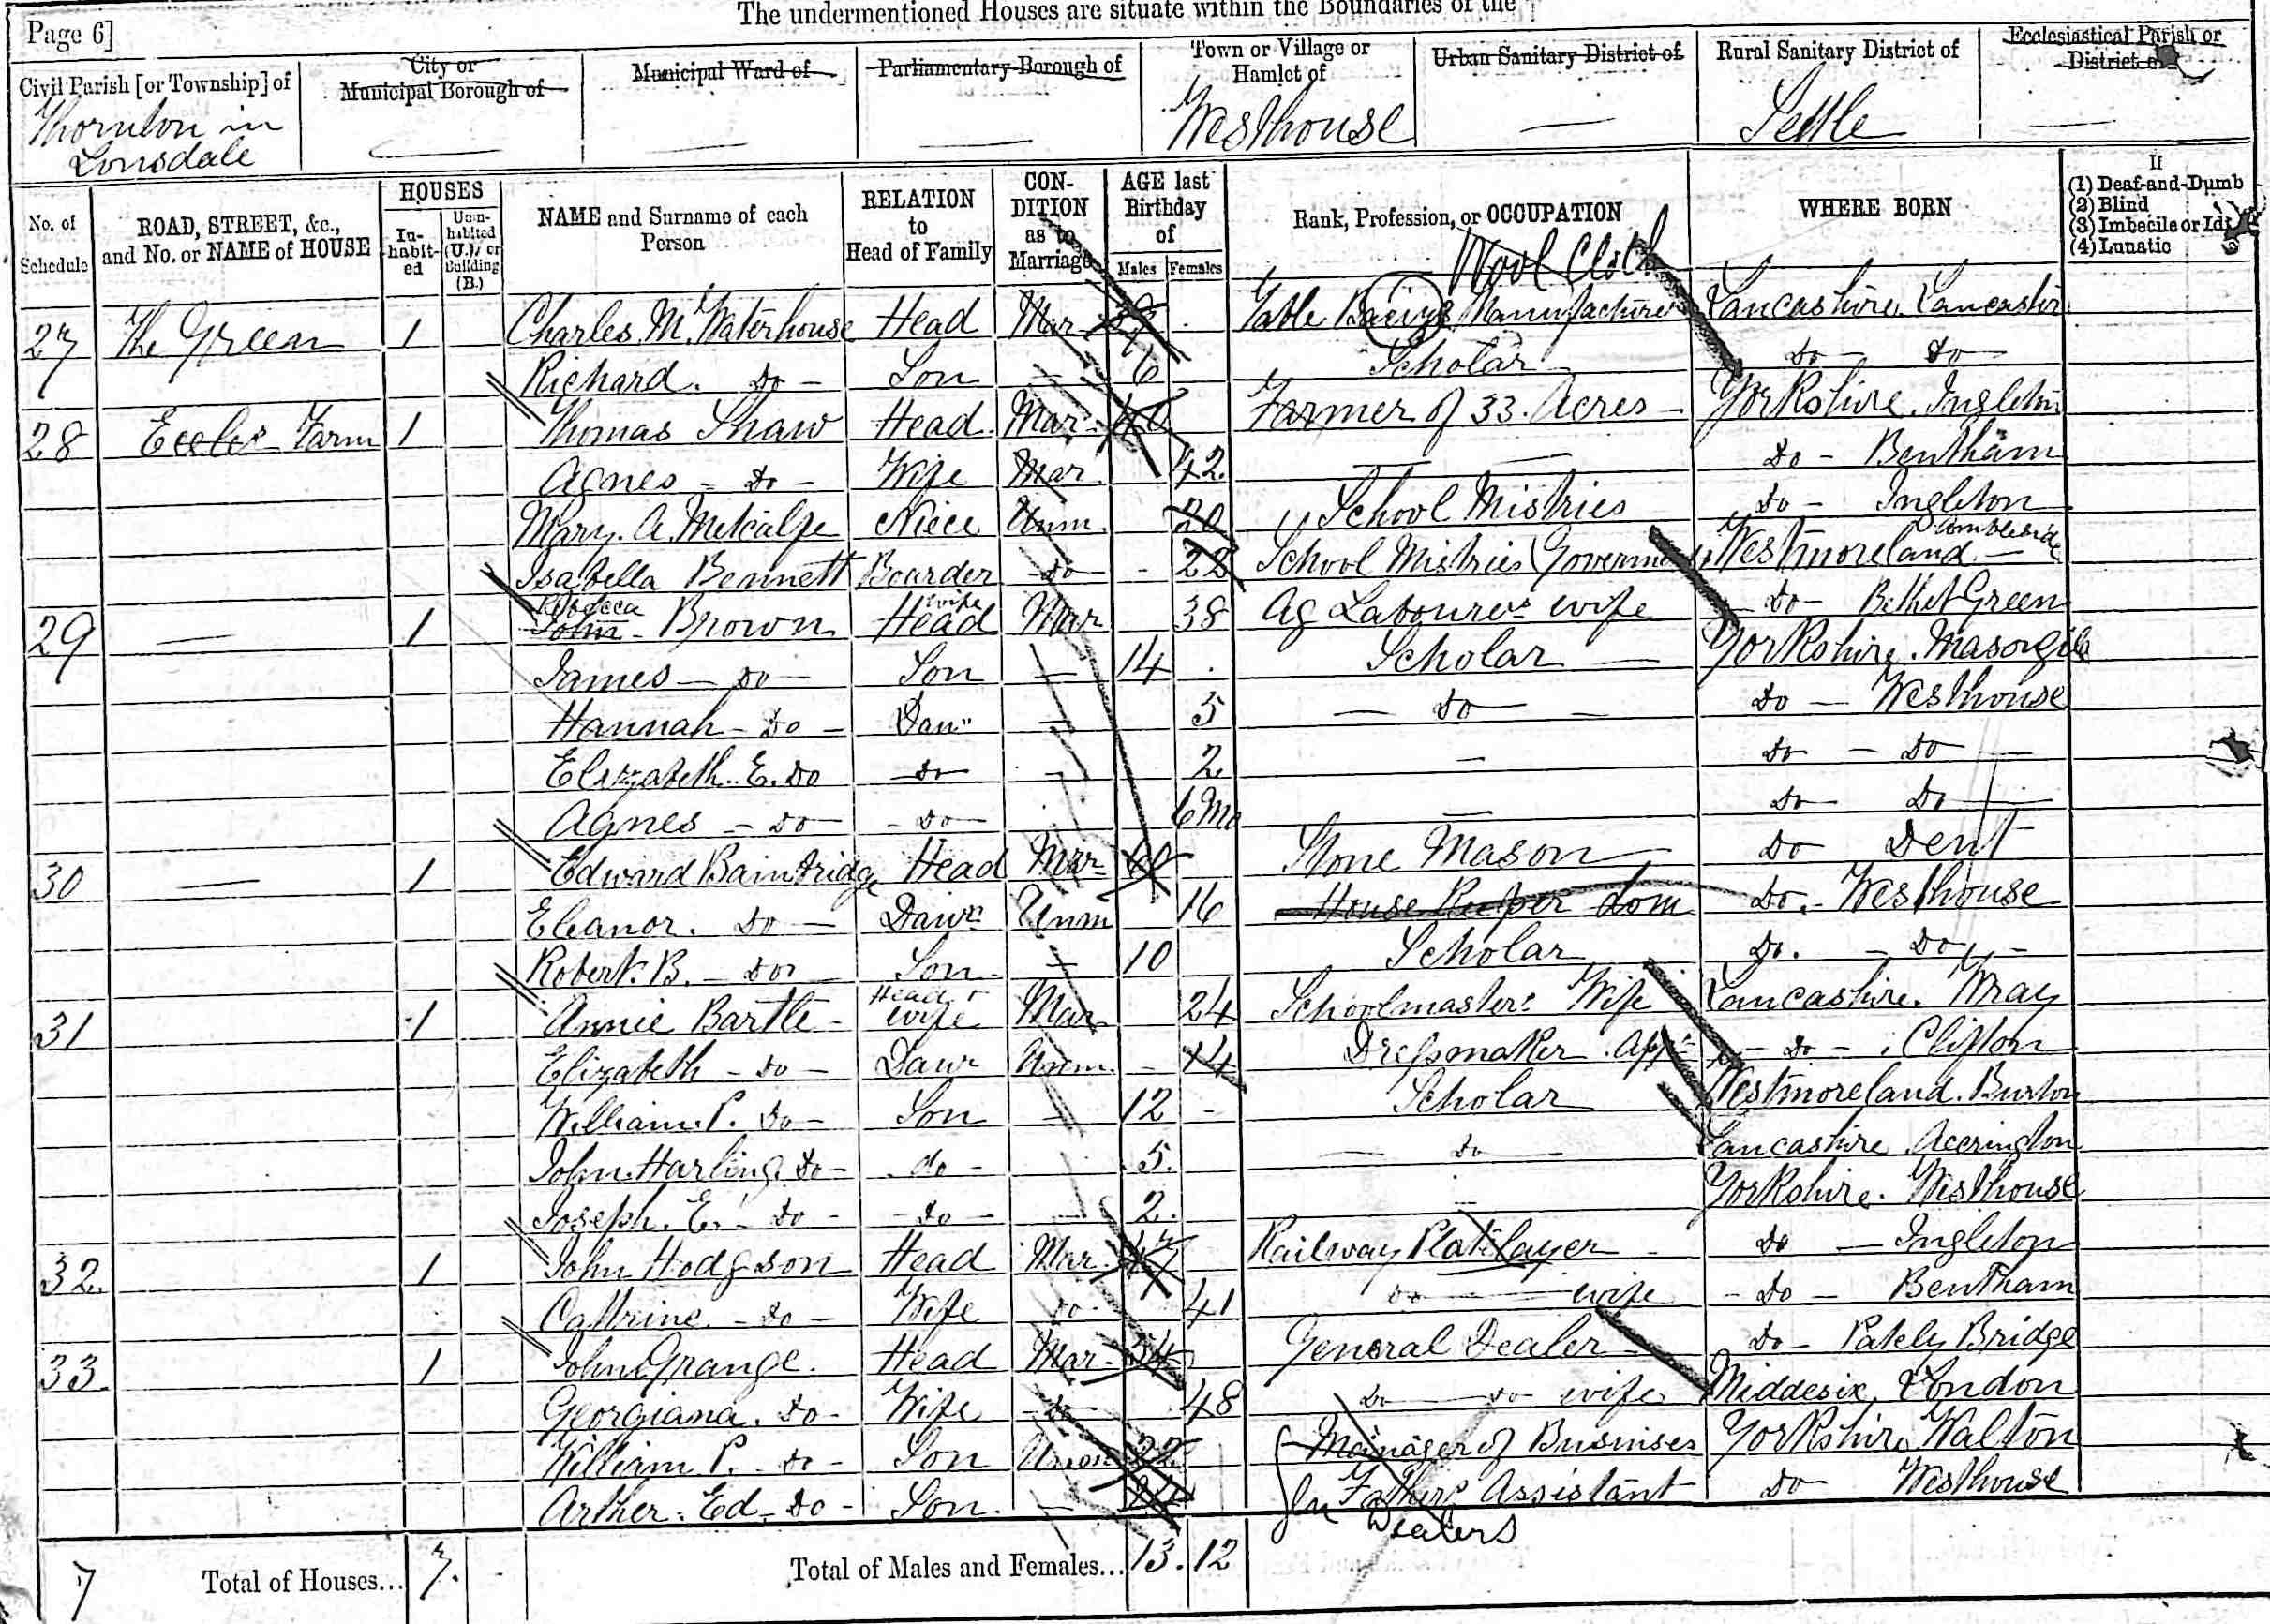 The undermentioned Houses are situate within the Boundaries of the
Page 6]
Civil Parish [or Township] of
Thornton in
Lonsdale
City or
Municipal Borough of
Municipal Ward of
Parliamentary Borough of
Town or Village or
Hamlet of
Westhouse
Urban Sanitary District of
Rural Sanitary District of
Settle
Ecclesiastical Parish or
District of
No. of
Schedule
ROAD, STREET, &c.,
and No. or NAME of HOUSE
HOUSES
In-
habit-
ed
Unin-
habited
(U.), or
Building
(B.)
NAME and Surname of each
Person
RELATION
to
Head of Family
CON-
DITION
as to
Marriage
AGE last
Birthday
of
Males Females
Rank, Profession, or OCCUPATION
WHERE BORN
If
(1) Deaf-and-Dumb
(2) Blind
(3) Imbecile or Idiot
(4) Lunatic
Wool Cloth
27 The Green 1 Charles M. Waterhouse Head Mar Table Manufacturer Lancashire Lancaster
Richard. Do - Son - 6 Scholar Do Do
28 Eccles Farm 1 Thomas Shaw Head Mar. Farmer of 33 Acres Yorkshire. Ingleton
Agnes - Do - Wife Mar. 42 Do - Bentham
Mary. A. Metcalfe Niece Unm 20 School Mistries Do - Ingleton
Isabella Bennett Boarder Do - 22 School Mistries (Governess) Westmoreland - Ambleside
29 - 1 Rebecca John Brown Head wife Mar 38 Ag Labourers wife Do - Bethel Green
James - Do - Son - 14 Scholar Yorkshire. Masongill
Hannah - Do - Daur - 5 - Do - Do - Westhouse
Elizabeth. E. Do - Do - 2 - Do - Do -
Agnes - Do - Do - 6 Mo - Do Do -
30 - 1 Edward Bainbridge Head Mar 60 Stone Mason Do Dent
Eleanor. Do - Dawr Unm 16 House Keeper dom Do. - Westhouse
Robert. B. - Do - Son - 10 Scholar Do. - Do -
31 1 Annie Bartle - Head + wife Mar 24 Schoolmasters Wife Lancashire. Wray
Elizabeth - Do - Dawr Unm. - 14 Dressmaker. App - Do - Clifton
William. P. Do - Son - 12 - Scholar Westmoreland. Burton
John. Harling. Do - do - 5. - do - Lancashire Accrington
Joseph. E. - Do - - Do - - 2. - Yorkshire. Westhouse
32. 1 John Hodgson Head Mar. 47 Railway Platelayer - Do - Ingleton
Cathrine. - Do - Wife Do - 41 Do - wife - Do - Bentham
33 1 John Grange. Head Mar - 54 General Dealer Do - Pately Bridge
Georgiana. Do - Wife - Do - 48 Do - do wife Middesix. London
William. P. - Do - Son 22 Manager of Busnises Yorkshire Walton
Arther. Ed - Do - Son. - Fathers Assistant Do Westhouse
Dealers
7 Total of Houses... 7. Total of Males and Females... 13. 12